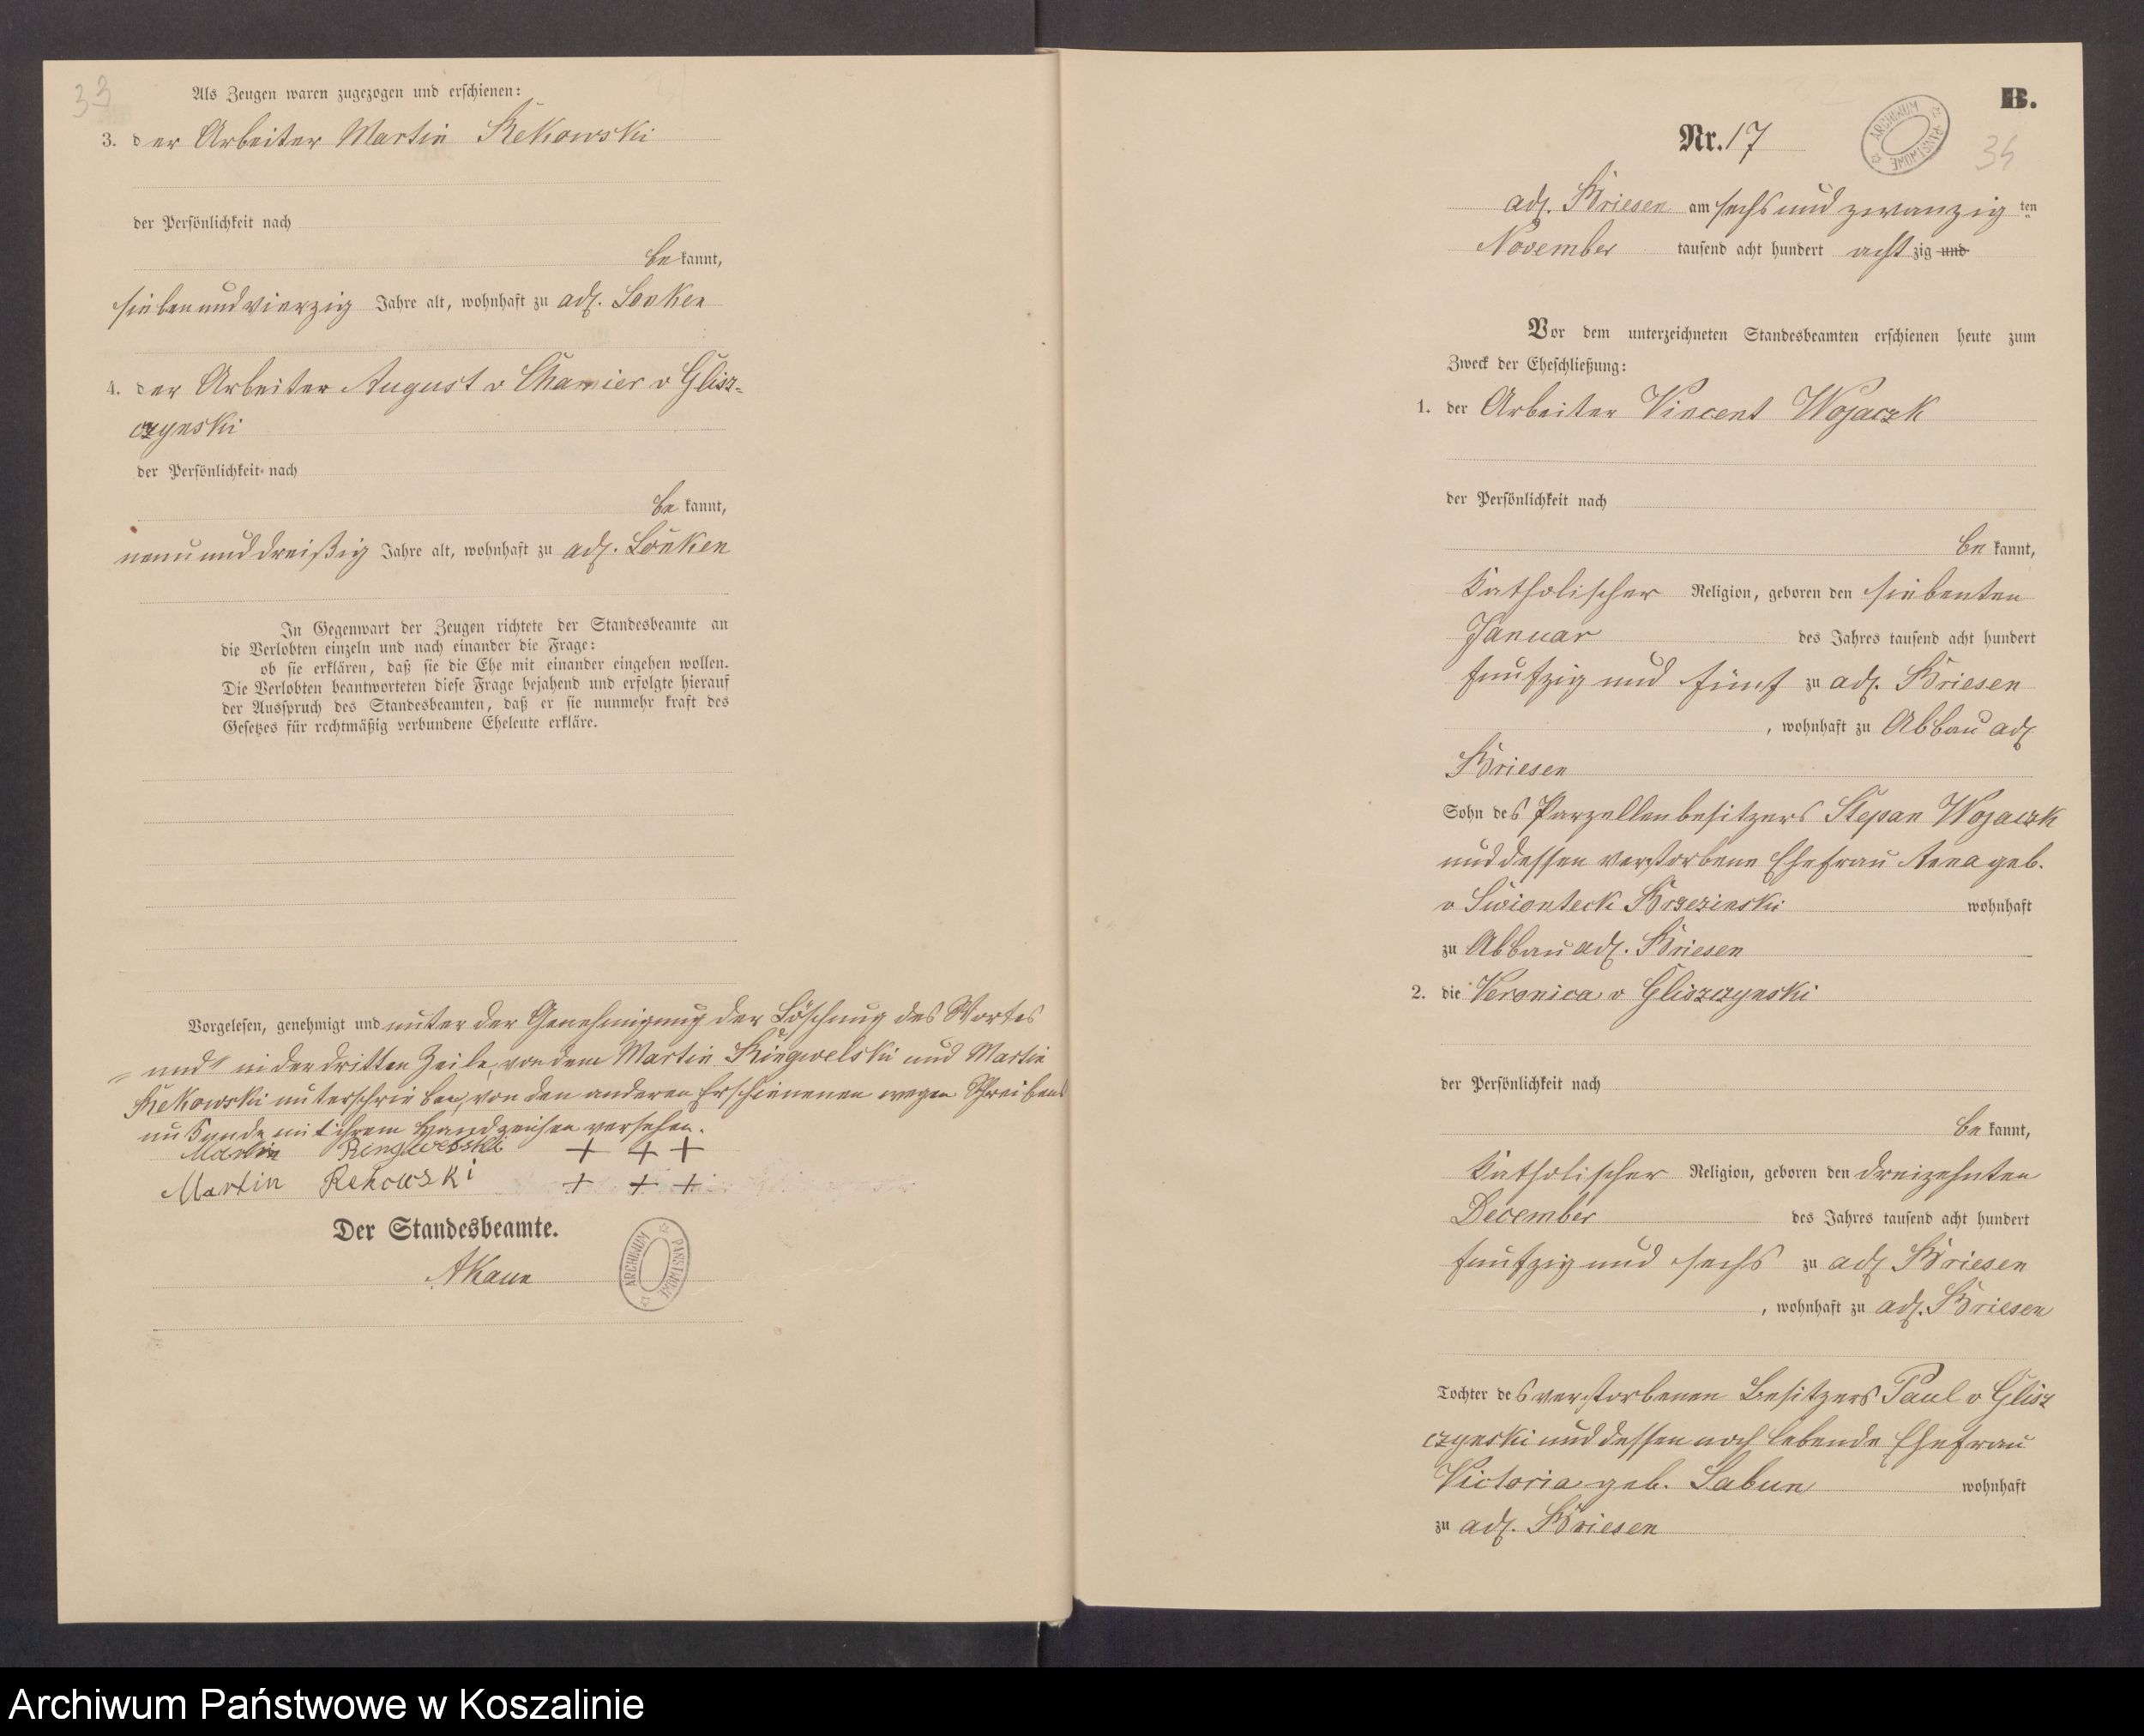 33
Als Zeugen waren zugezogen und erschienen:
3. der Arbeiter Martin Rekowski
der Persönlichkeit nach
be kannt,
siebenundvierzig Jahre alt, wohnhaft zu adl. Lonken
4. der Arbeiter August v Chamier v Glisz-
czynski
der Persönlichkeit nach
be kannt,
neununddreißig Jahre alt, wohnhaft zu adl. Lonken
In Gegenwart der Zeugen richtete der Standesbeamte an
die Verlobten einzeln und nach einander die Frage:
ob sie erklären, daß sie die Ehe mit einander eingehen wollen.
Die Verlobten beantworteten diese Frage bejahend und erfolgte hierauf
der Ausspruch des Standesbeamten, daß er sie nunmehr kraft des
Gesetzes für rechtmäßig verbundene Eheleute erkläre.
Vorgelesen, genehmigt und unter der Genehmigung der Löschung des Wortes
„und" in der dritten Zeile, von dem Martin Ringwelski und Martin
Rekowski unterschrieben, von den anderen Erschienenen wegen Schreibens
unkunde mit ihrem Handzeichen versehen.
Martin Ringwelski + + +
Martin Rekowski + + +
Der Standesbeamte.
AKaun
ARCHIWUM PAŃSTWOWE
B.
Nr. 17
ARCHIWUM PAŃSTWOWE
34
adl. Briesen am sechs und zwanzig ten
November tausend acht hundert acht zig und
Vor dem unterzeichneten Standesbeamten erschienen heute zum
Zweck der Eheschließung:
1. der Arbeiter Vincent Wojaczk
der Persönlichkeit nach
be kannt,
katholischer Religion, geboren den siebenten
Januar des Jahres tausend acht hundert
funfzig und fünf zu adl. Briesen
, wohnhaft zu Abbau adl
Briesen
Sohn des Parzellenbesitzers Stepan Wojaczk
und dessen verstorbene Ehefrau Anna geb.
v Swionteck Brzezinski wohnhaft
zu Abbau adl. Briesen
2. die Veronica v Gliszczynski
der Persönlichkeit nach
be kannt,
katholischer Religion, geboren den dreizehnten
December des Jahres tausend acht hundert
funfzig und sechs zu adl Briesen
, wohnhaft zu adl. Briesen
Tochter des verstorbenen Besitzers Paul v Glisz
czynski und dessen noch lebende Ehefrau
Victoria geb. Labun wohnhaft
zu adl. Briesen
Archiwum Państwowe w Koszalinie